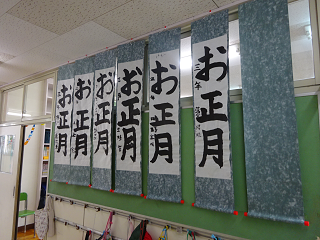 お正月
お正月
お正月
お正月
お正月
お正月
三年